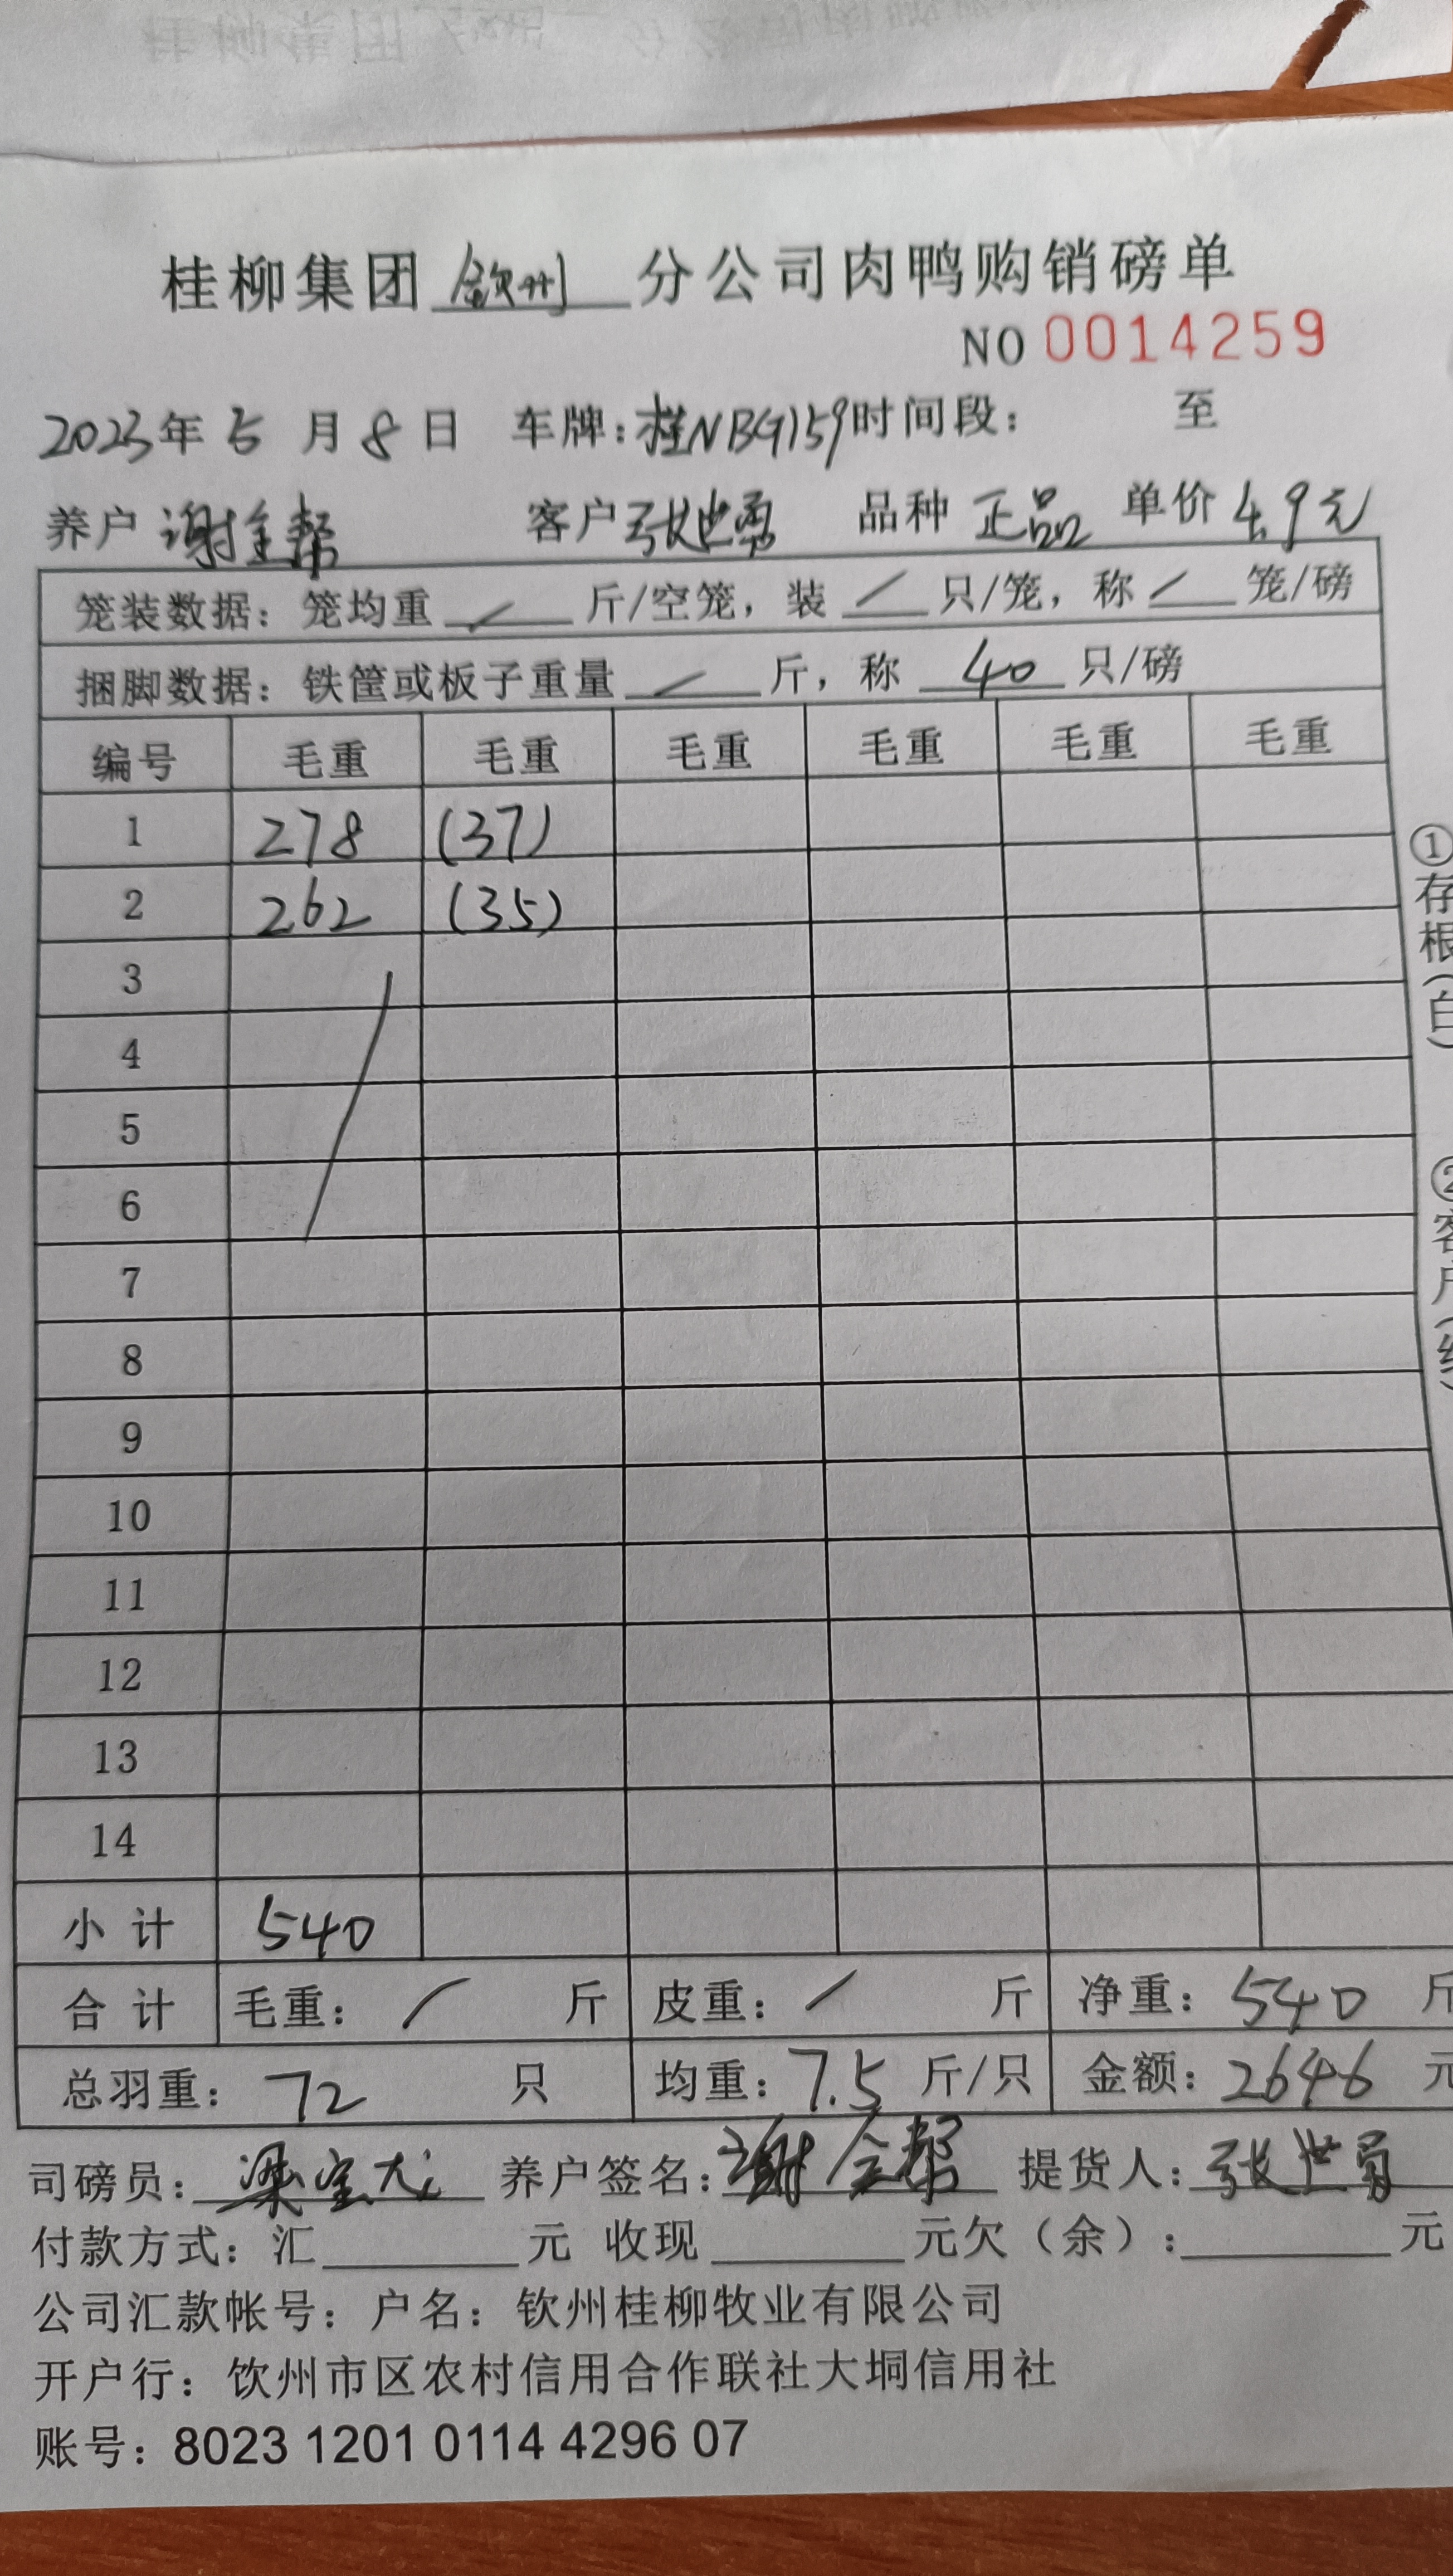 桂柳集团 钦州 分公司肉鸭购销磅单
NO 0014259
2023年 5 月 8 日 车牌：桂NBG159 时间段： 至
养户 谢全帮 客户 张世勇 品种 正品 单价 4.9元
笼装数据：笼均重 / 斤/空笼，装 / 只/笼，称 / 笼/磅
捆脚数据：铁筐或板子重量 / 斤，称 40 只/磅
编号 毛重 毛重 毛重 毛重 毛重 毛重
1 278 (37)
2 262 (35)
3
4
5
6
7
8
9
10
11
12
13
14
小计 540
合计 毛重： / 斤 皮重： / 斤 净重：540 斤
总羽重：72 只 均重：7.5 斤/只 金额：2646 元
司磅员：梁宝龙 养户签名：谢全帮 提货人：张世勇
付款方式：汇 元 收现 元欠（余）： 元
公司汇款帐号：户名：钦州桂柳牧业有限公司
开户行：钦州市区农村信用合作联社大垌信用社
账号：8023 1201 0114 4296 07
①存根(白)
②客户(红)